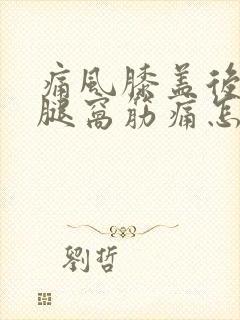 痛風膝盖後
腿窩筋痛怎
劉哲